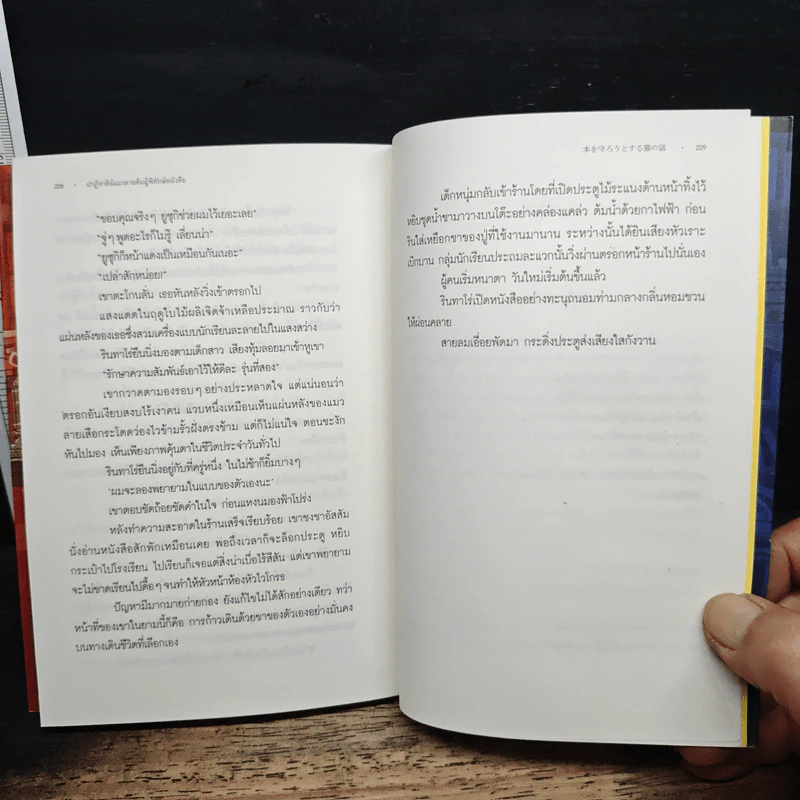 228 • ปาฏิหาริย์แมวลายส้มผู้พิทักษ์หนังสือ
“ขอบคุณจริงๆ ยูซุกิช่วยผมไว้เยอะเลย”
“จู่ๆ พูดอะไรก็ไม่รู้ เลี่ยนน่า”
“ยูซุกิก็หน้าแดงเป็นเหมือนกันเนอะ”
“เปล่าสักหน่อย!”
เขาตะโกนลั่น เธอหันหลังวิ่งเข้าตรอกไป
แสงแดดในฤดูใบไม้ผลิเจิดจ้าเหลือประมาณ ราวกับว่า
แผ่นหลังของเธอซึ่งสวมเครื่องแบบนักเรียนละลายไปในแสงสว่าง
รินทาโร่ยืนนิ่งมองตามเด็กสาว เสียงทุ้มลอยมาเข้าหูเขา
“รักษาความสัมพันธ์เอาไว้ให้ดีล่ะ รุ่นที่สอง”
เขากวาดตามองรอบๆ อย่างประหลาดใจ แต่แน่นอนว่า
ตรอกอันเงียบสงบไร้เงาคน แวบหนึ่งเหมือนเห็นแผ่นหลังของแมว
ลายเสือกระโดดว่องไวข้ามรั้วฝั่งตรงข้าม แต่ก็ไม่แน่ใจ ตอนชะงัก
หันไปมอง เห็นเพียงภาพคุ้นตาในชีวิตประจำวันทั่วไป
รินทาโร่ยืนนิ่งอยู่กับที่ครู่หนึ่ง ในไม่ช้าก็ยิ้มบางๆ
‘ผมจะลองพยายามในแบบของตัวเองนะ’
เขาตอบชัดถ้อยชัดคำในใจ ก่อนแหงนมองฟ้าโปร่ง
หลังทำความสะอาดในร้านเสร็จเรียบร้อย เขาชงชาอัสสัม
นั่งอ่านหนังสือสักพักเหมือนเคย พอถึงเวลาก็จะล็อกประตู หยิบ
กระเป๋าไปโรงเรียน ไปเรียนก็เจอแต่สิ่งน่าเบื่อไร้สีสัน แต่เขาพยายาม
จะไม่ขาดเรียนไปดื้อๆ จนทำให้หัวหน้าห้องหัวไวโกรธ
ปัญหามีมากมายก่ายกอง ยังแก้ไขไม่ได้สักอย่างเดียว ทว่า
หน้าที่ของเขาในยามนี้ก็คือ การก้าวเดินด้วยขาของตัวเองอย่างมั่นคง
บนทางเดินชีวิตที่เลือกเอง
本を守ろうとする猫の話 • 229
เด็กหนุ่มกลับเข้าร้านโดยที่เปิดประตูไม้ระแนงด้านหน้าทิ้งไว้
หยิบชุดน้ำชามาวางบนโต๊ะอย่างคล่องแคล่ว ต้มน้ำด้วยกาไฟฟ้า ก่อน
รินใส่เหยือกชาของปู่ที่ใช้งานมานาน ระหว่างนั้นได้ยินเสียงหัวเราะ
เบิกบาน กลุ่มนักเรียนประถมละแวกนั้นวิ่งผ่านตรอกหน้าร้านไปนั่นเอง
ผู้คนเริ่มหนาตา วันใหม่เริ่มต้นขึ้นแล้ว
รินทาโร่เปิดหนังสืออย่างทะนุถนอมท่ามกลางกลิ่นหอมชวน
ให้ผ่อนคลาย
สายลมเอื่อยพัดมา กระดิ่งประตูส่งเสียงใสกังวาน